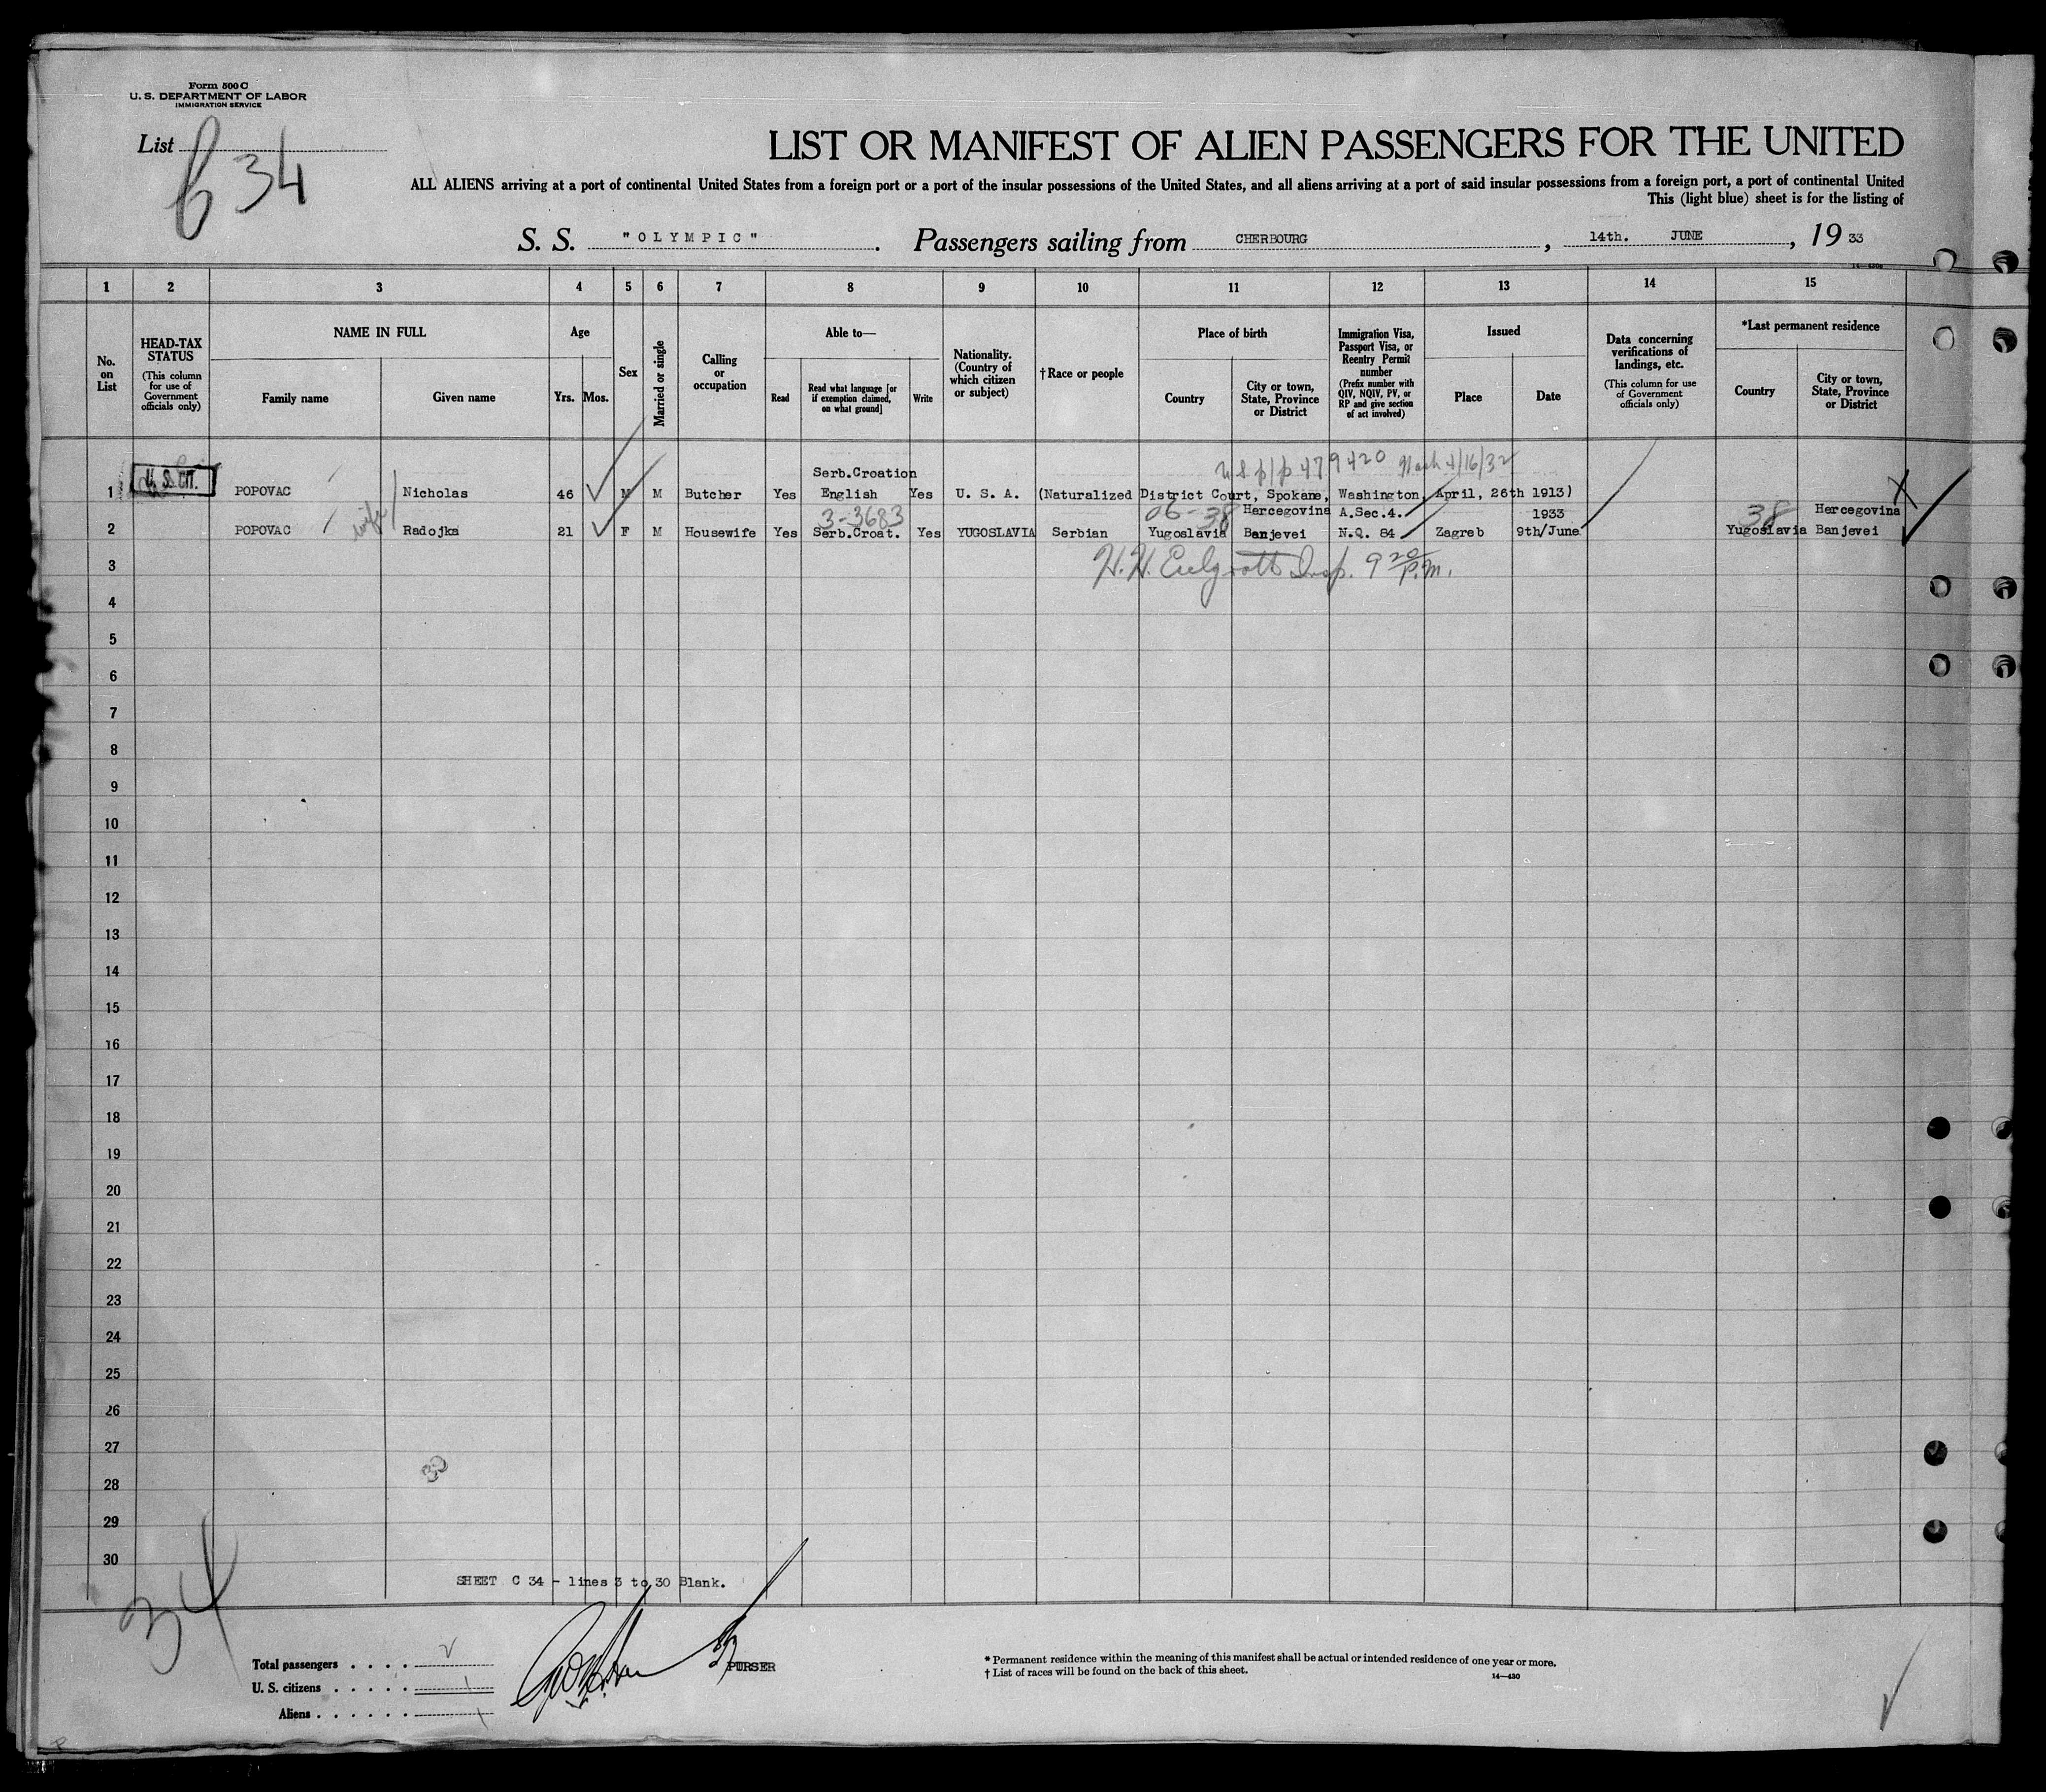 Form 500 C
U. S. DEPARTMENT OF LABOR
IMMIGRATION SERVICE
List
34
LIST OR MANIFEST OF ALIEN PASSENGERS FOR THE UNITED
ALL ALIENS arriving at a port of continental United States from a foreign port or a port of the insular possessions of the United States, and all aliens arriving at a port of said insular possessions from a foreign port, a port of continental United
This (light blue) sheet is for the listing of
S. S. "OLYMPIC". Passengers sailing from CHERBOURG, 14th. JUNE, 19 33
1 2 3 4 5 6 7 8 9 10 11 12 13 14 15
No. on List
HEAD-TAX STATUS
(This column for use of Government officials only)
NAME IN FULL
Family name
Given name
Age
Yrs. Mos.
Sex
Married or single
Calling or occupation
Able to—
Read
Read what language [or if exemption claimed, on what ground]
Write
Nationality. (Country of which citizen or subject)
†Race or people
Place of birth
Country
City or town, State, Province or District
Immigration Visa, Passport Visa, or Reentry Permit number
(Prefix number with QIV, NQIV, PV, or RP and give section of act involved)
Issued
Place
Date
Data concerning verifications of landings, etc.
(This column for use of Government officials only)
*Last permanent residence
Country
City or town, State, Province or District
U. S. CIT.
U.S. p/p 479420 4/16/32
Serb.Croation
1 POPOVAC Nicholas 46 M M Butcher Yes English Yes U. S. A. (Naturalized District Court, Spokane, Washington, April, 26th 1913)
wife 3-3683 06-38 Hercegovina A.Sec.4. 1933 38 Hercegovina
2 POPOVAC Radojka 21 F M Housewife Yes Serb.Croat. Yes YUGOSLAVIA Serbian Yugoslavia Banjevei N.Q. 84 Zagreb 9th/June Yugoslavia Banjevei
3 H. H. Insp. 9 20 P.M.
4
5
6
7
8
9
10
11
12
13
14
15
16
17
18
19
20
21
22
23
24
25
26
27
28
29
30
SHEET C 34 - lines 3 to 30 Blank.
34
Total passengers . . . .
U. S. citizens . . . . . 1
Aliens . . . . . . 1
PURSER
* Permanent residence within the meaning of this manifest shall be actual or intended residence of one year or more.
† List of races will be found on the back of this sheet.
14—430